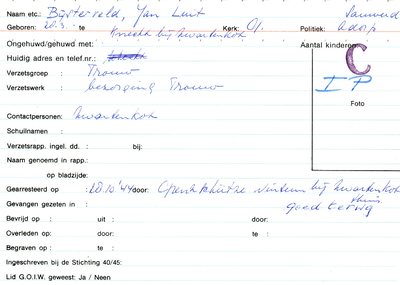 Naam etc.: Bijsterveld, Jan Luit Sauwerd
Geboren: 20.3. te Kerk: Politiek: Adorp
Knecht bij Kwartenkot
Ongehuwd/gehuwd met: Aantal kinderen
Huidig adres en telef.nr.: C
Verzetsgroep : Trouw I P
Verzetswerk : bezorging Trouw
Foto
Contactpersonen: Kwartenkot
Schuilnaam :
Verzetsrapp. ingel. dd. : bij:
Naam genoemd in rapp.:
op bladzijde:
Gearresteerd op : 20.10.'44 door: bij Kwartenkot
thuis
Gevangen gezeten in : goed terug
Bevrijd op : uit : door:
Overleden op: door: te :
Begraven op : te :
Ingeschreven bij de Stichting 40/45:
Lid G.O.I.W. geweest: Ja / Neen